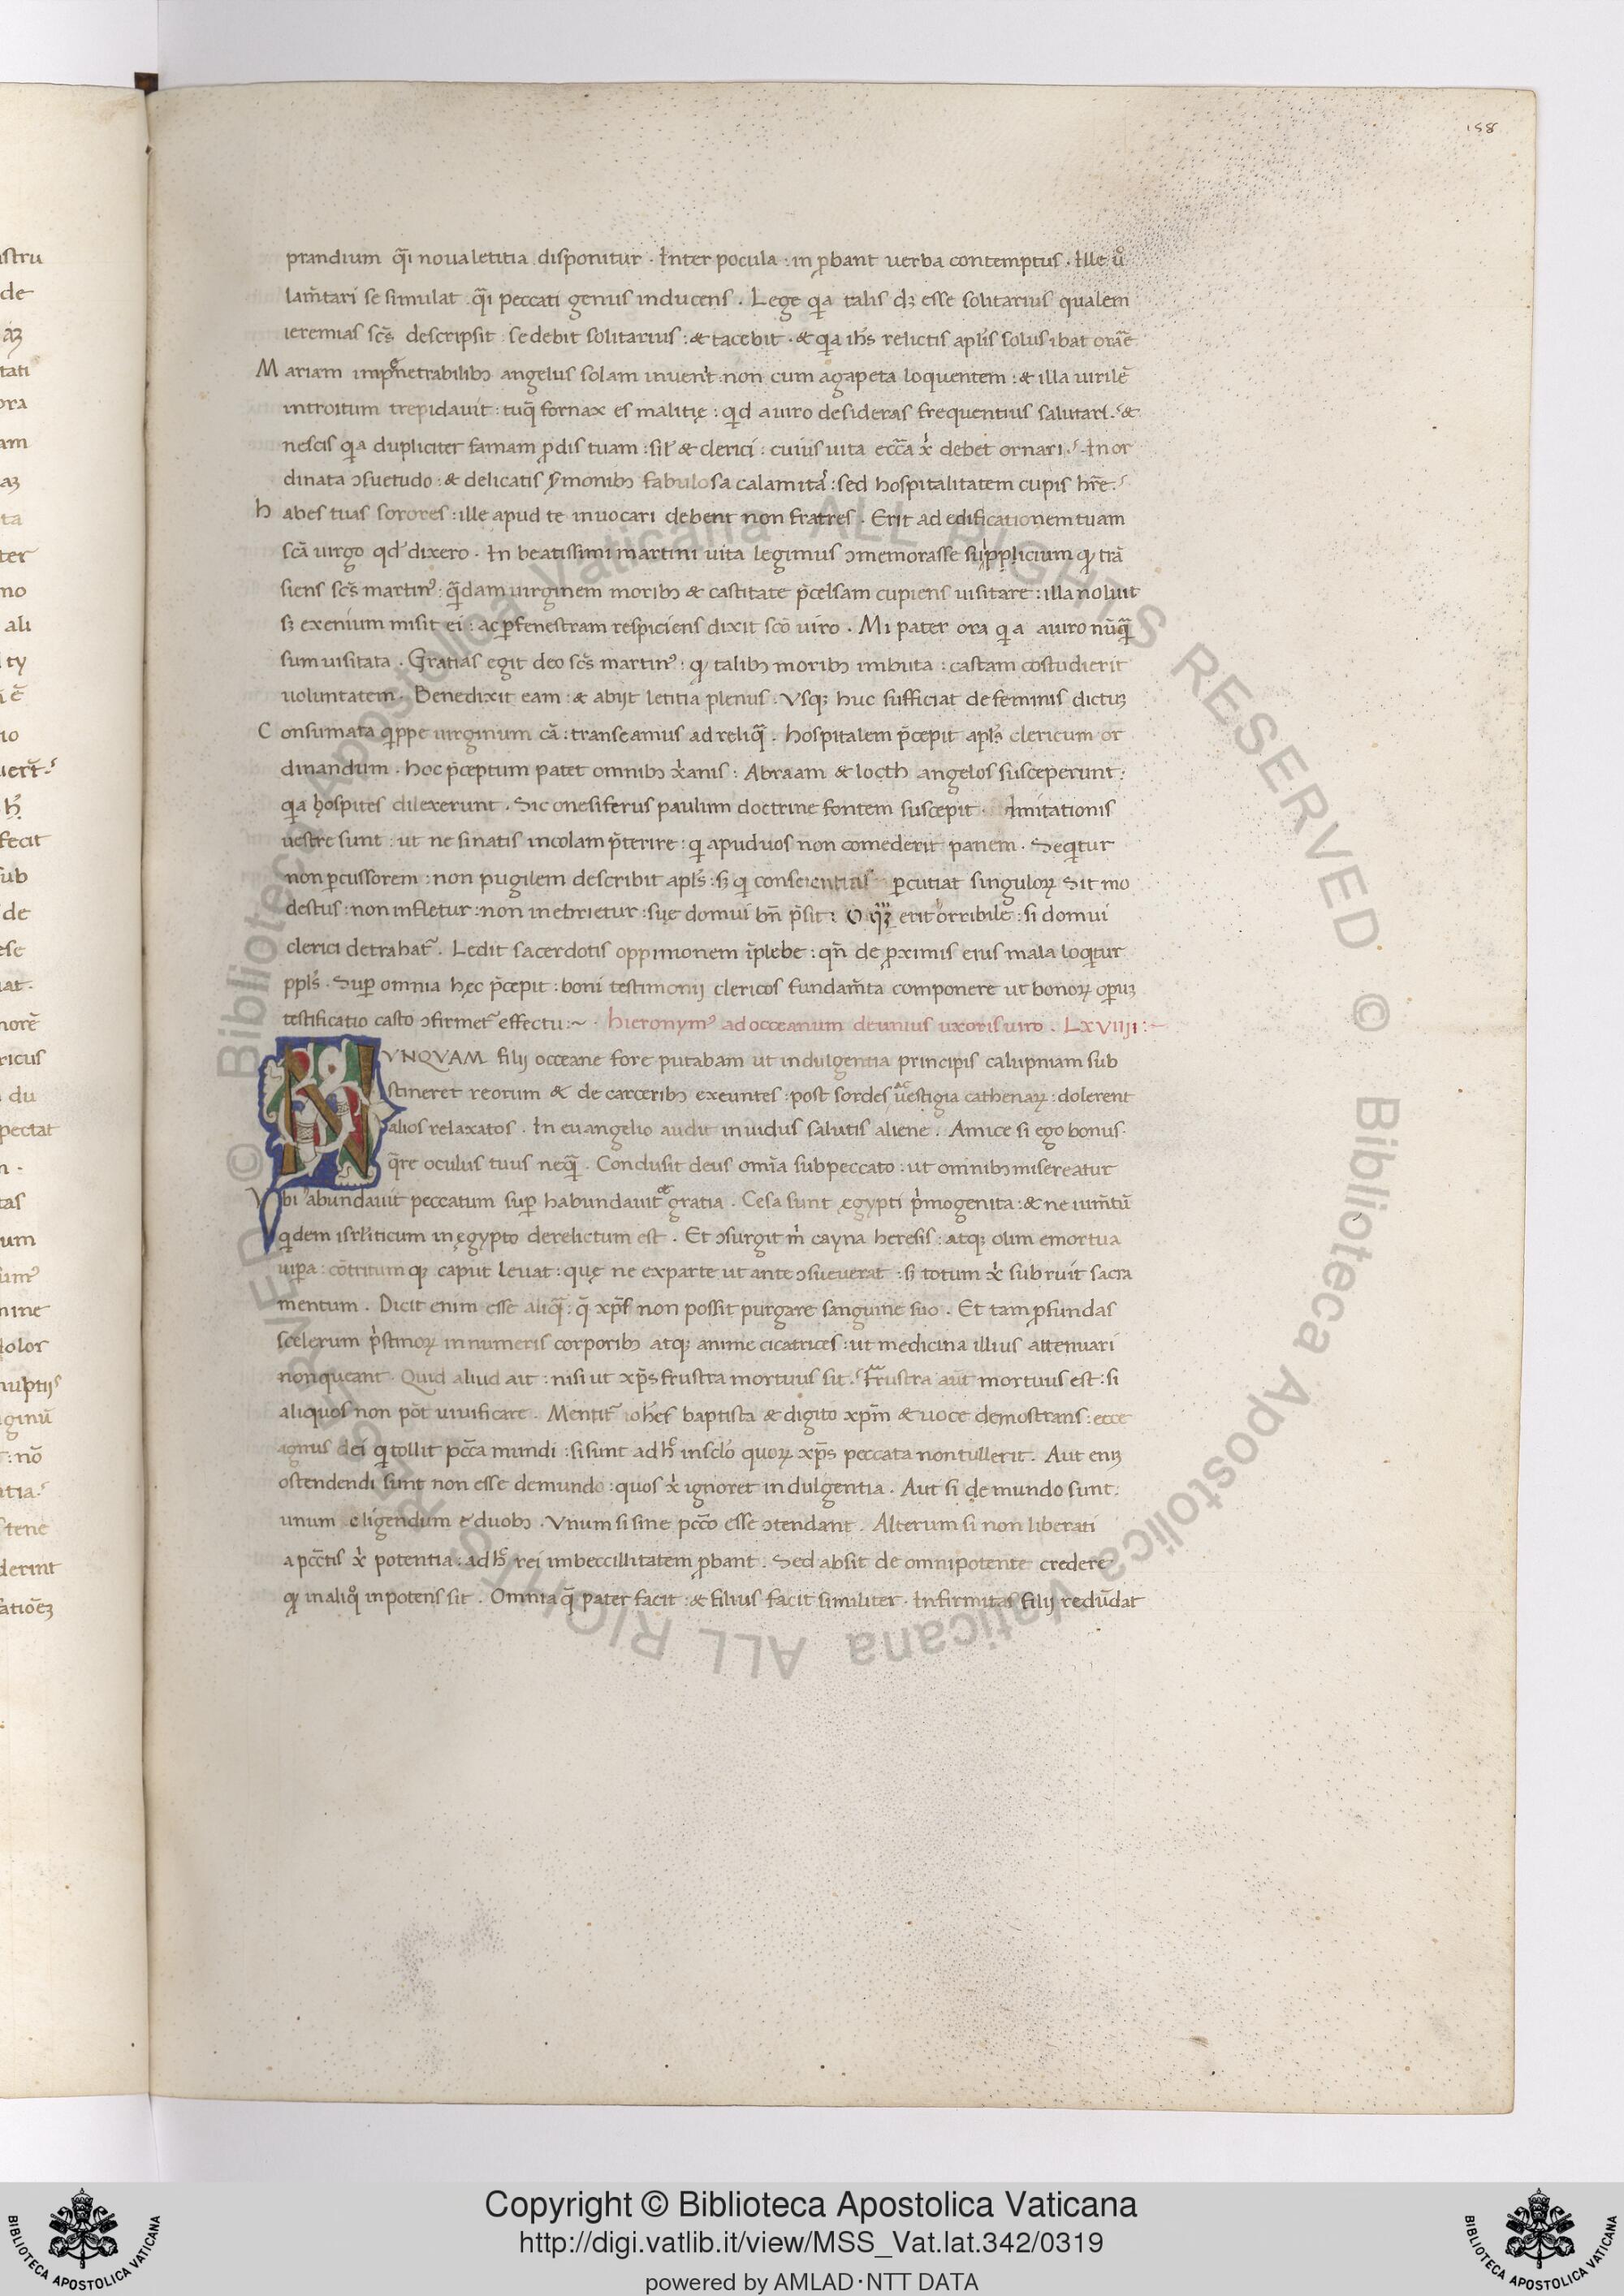 158
prandium q̄i noua letitia disponitur · Inter pocula : inꝓbant uerba contemptus · Ille ů
lam̄tari se simulat q̄i peccati genus inducens . Lege qa talis dꝫ esse solitarius qualem
ieremias scs̄ descripsit sedebit solitarius : & tacebit · & qa ihs̄ relictis aplis̄ solus ibat orar̄e
Mariam impenetrabilibꝫ angelus solam inuenit non cum agapeta loquentem : & illa uirilē
introitum trepidauit : tuq̄ fornax es malitię : qd auiro desideras frequentius salutari. &
nescis qa dupliciter famam ꝑdis tuam : sil̄ & clerici : cuius uita ecc̄a x̓ debet ornari · Inor
dinata ɔsuetudo : & delicatis sꝑmonibꝫ fabulosa calamitā : sed hospitalitatem cupis hr̄e.
habes tuas sorores : ille apud te inuocari debent non fratres . Erit ad edificationem tuam
scā uirgo qd̄ dixero . In beatissimi martini uita legimus ɔmemorasse supplicium qꝫ trā
siens scs̄ martinꝰ : q̄dam uirginem moribꝫ & castitate p̄celsam cupiens uisitare : illa noluit
sꝫ exenium misit ei : ac ꝑ fenestram respiciens dixit scō uiro . Mi pater ora qa auiro nūq̄
sum uisitata . Gratias egit deo scs̄ martinꝰ : qꝫ talibꝫ moribꝫ imbuta : castam costudierit
uoluntatem . Benedixit eam : & abijt letitia plenus . Vsqꝫ huc sufficiat de feminis dictuꝫ
Consumata qppe uirginum cā : transeamus ad reliq̄ . hospitalem p̄cepit apls̄ clericum or
dinandum . hoc p̄ceptum patet omnibꝫ x̓anis : Abraam & locth angelos susceperunt :
qa hospites dilexerunt . Sic onesiferus paulum doctrine fontem suscepit · Imitationis
uestre sunt : ut ne sinatis incolam p̄terire : q apud uos non comederit panem . Seqtur
non ꝑcussorem : non pugilem describit apls̄ : sꝫ q conscientias ꝑcutiat singuloꝝ Sit mo
destus : non infletur : non inebrietur : suę domui bn̄ p̄sit : O erit orribile : si domui
clerici detrahatr̄ . Ledit sacerdotis oppinionem īplebe : qn̄ de ꝓximis eius mala loqtur
ppls̄ . Suꝑ omnia hęc p̄cepit : boni testimonij clericos fundam̄ta componere ut bonoꝝ oꝑuꝫ
testificatio casto ɔfirmetr̄ effectu :~ · hieronymꝰ ad occeanum de unius uxoris uiro . LXVIIII :~
NVNQVAM filij occeane fore putabam ut indulgentia principis calupniam sub
stineret reorum & de carceribꝫ exeuntes : post sordes ac uestigia cathenaꝝ : dolerent
alios relaxatos . In euangelio audit inuidus salutis aliene . Amice si ego bonus ·
q̄re oculus tuus neq̄ . Conclusit deus om̄ia sub peccato : ut omnibꝫ misereatur
Vbi abundauit peccatum suꝑ habundauit & gratia . Cesa sunt ęgypti p̓mogenita : & ne ium̄tū
qdem isrl̄iticum in ęgypto derelictum est . Et ɔsurgit m̓ cayna heresis : atqꝫ olim emortua
uiꝑa : cōtritumqꝫ caput leuat : quę ne exparte ut ante ɔsueuerat : sꝫ totum x̓ subruit sacra
mentum . Dicit enim esse aliq̄ : q̄ xp̄s non possit purgare sanguine suo . Et tam ꝓfundas
scelerum p̓stinoꝝ innumeris corporibꝫ atqꝫ anime cicatrices : ut medicina illius attenuari
non queant . Quid aliud ait : nisi ut xp̄s frustra mortuus sit . Frustra aut̄ mortuus est : si
aliquos non pōt uiuificare . Mentitr̄ iohēs baptista & digito xpm̄ & uoce demostrans : ecce
agnus dei q tollit pcc̄a mundi : si sunt adhc̄ insclo̓ quoꝝ xp̄s peccata non tullerit . Aut eniꝫ
ostendendi sunt non esse de mundo : quos x̓ ignoret indulgentia . Aut si de mundo sunt :
unum eligendum e duobꝫ . Vnum si sine pcc̄o esse ɔtendant . Alterum si non liberati
a pcc̄tis x̓ potentia : adhc̄ rei imbeccillitatem ꝓbant . Sed absit de omnipotente credere
qꝫ in aliqo̓ inpotens sit . Omnia q̄ pater facit : & filius facit similiter . Infirmitas filij redūdat
Copyright © Biblioteca Apostolica Vaticana
http://digi.vatlib.it/view/MSS_Vat.lat.342/0319
powered by AMLAD·NTT DATA